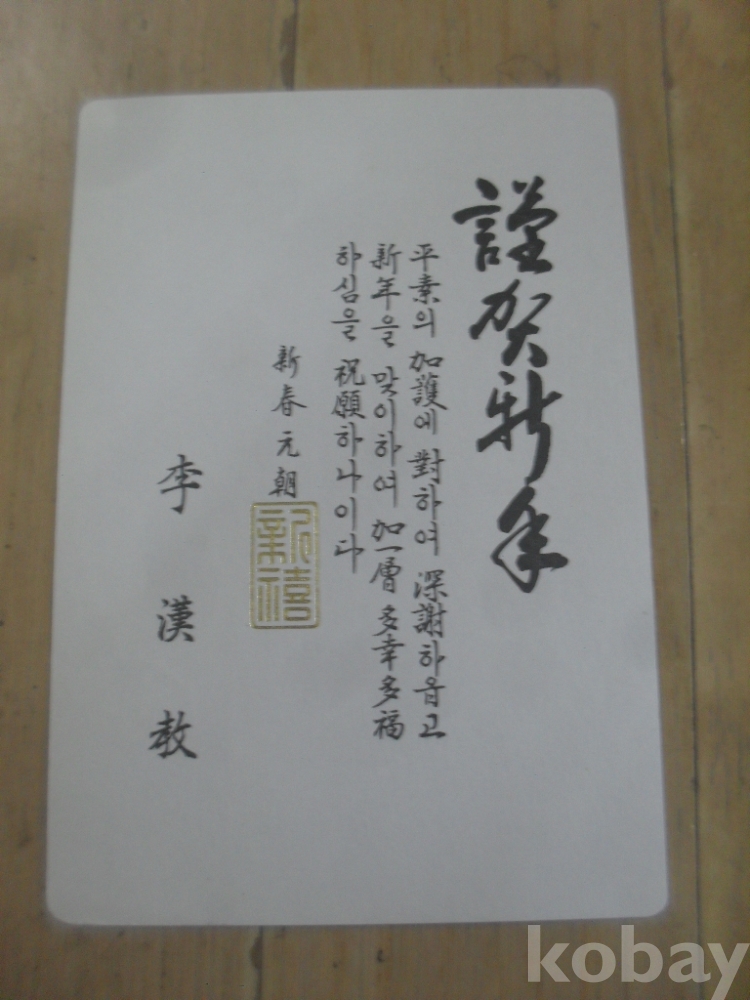 謹賀新年
平素의 加護에 對하여 深謝하옵고
新年을 맞이하여 加一層 多幸多福
하심을 祝願하나이다
新春元朝
新禧
李漢敎
kobay